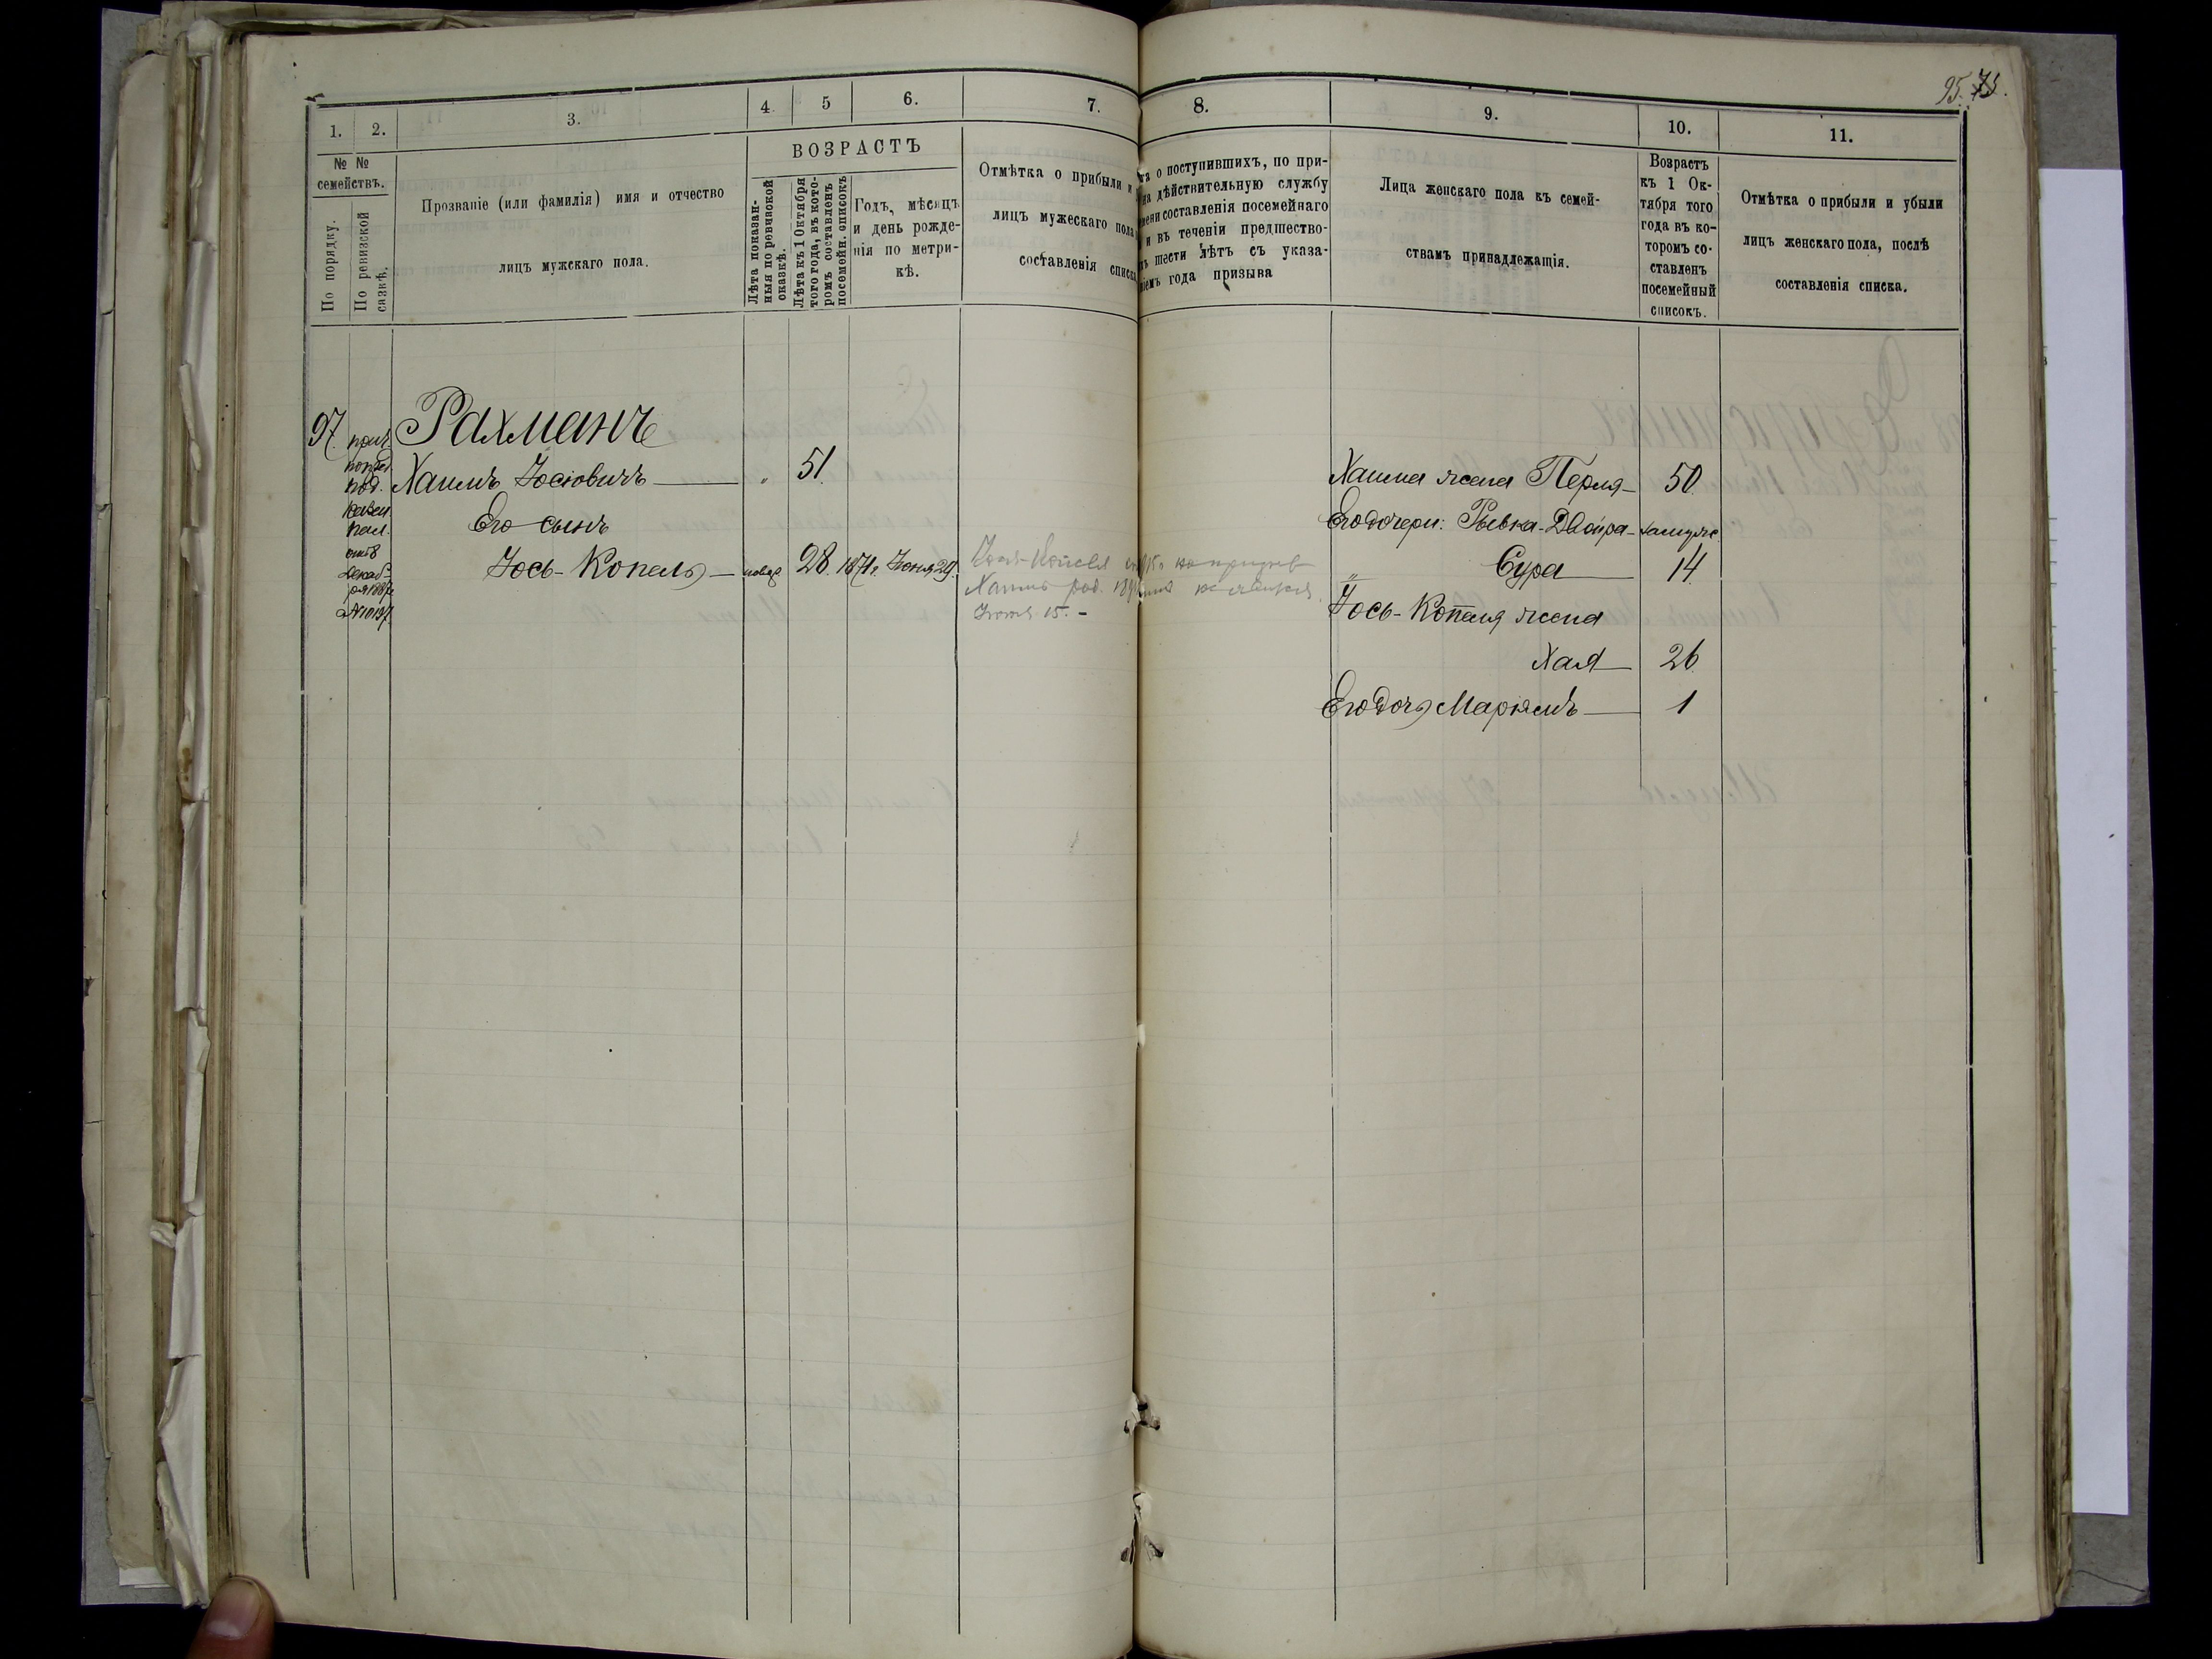 95. 75.
1. 2. 3. 4. 5 6. 7. 8. 9. 10. 11.
№ №
семействъ.
По порядку.
По ревизской
сказкѣ.
Прозваніе (или фамилія) имя и отчество
лицъ мужскаго пола.
ВОЗРАСТЪ
Лѣта показан-
ныя по ревизской
сказкѣ.
Лѣта къ 1 Октября
того года, въ кото-
ромъ составленъ
посемейн. списокъ
Годъ, мѣсяцъ
и день рожде-
нія по метри-
кѣ.
Отмѣтка о прибыли и
лицъ мужескаго пола
составленія списка
та о поступившихъ, по при-
на дѣйствительную службу
мени составленія посемейнаго
и въ теченіи предшество-
ъ шести лѣтъ съ указа-
іемъ года призыва
Лица женскаго пола къ семей-
ствамъ принадлежащія.
Возрастъ
къ 1 Ок-
тября того
года въ ко-
торомъ со-
ставленъ
посемейный
списокъ.
Отмѣтка о прибыли и убыли
лицъ женскаго пола, послѣ
составленія списка.
97. Рахманъ
под.
Казен.
пал.
отъ 8
Декаб-
ря
№ 10197
Хаимъ Іосіовичъ — „ 51.
Его сынъ
Іось-Копель — 28. 1871 г. Іюня 29.
Хаимъ род.
Іюня 15. –
Хаима жена Перля — 50
Его дочери: Рывка-Двойра — замуже
„ Сура — 14
Іось-Копеля жена
Хая — 26
Его дочь Маріямъ — 1